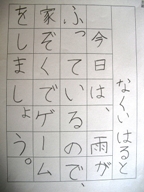 なくいはると
今日は、雨が
ふっているので、
家ぞくでゲーム
をしましょう。